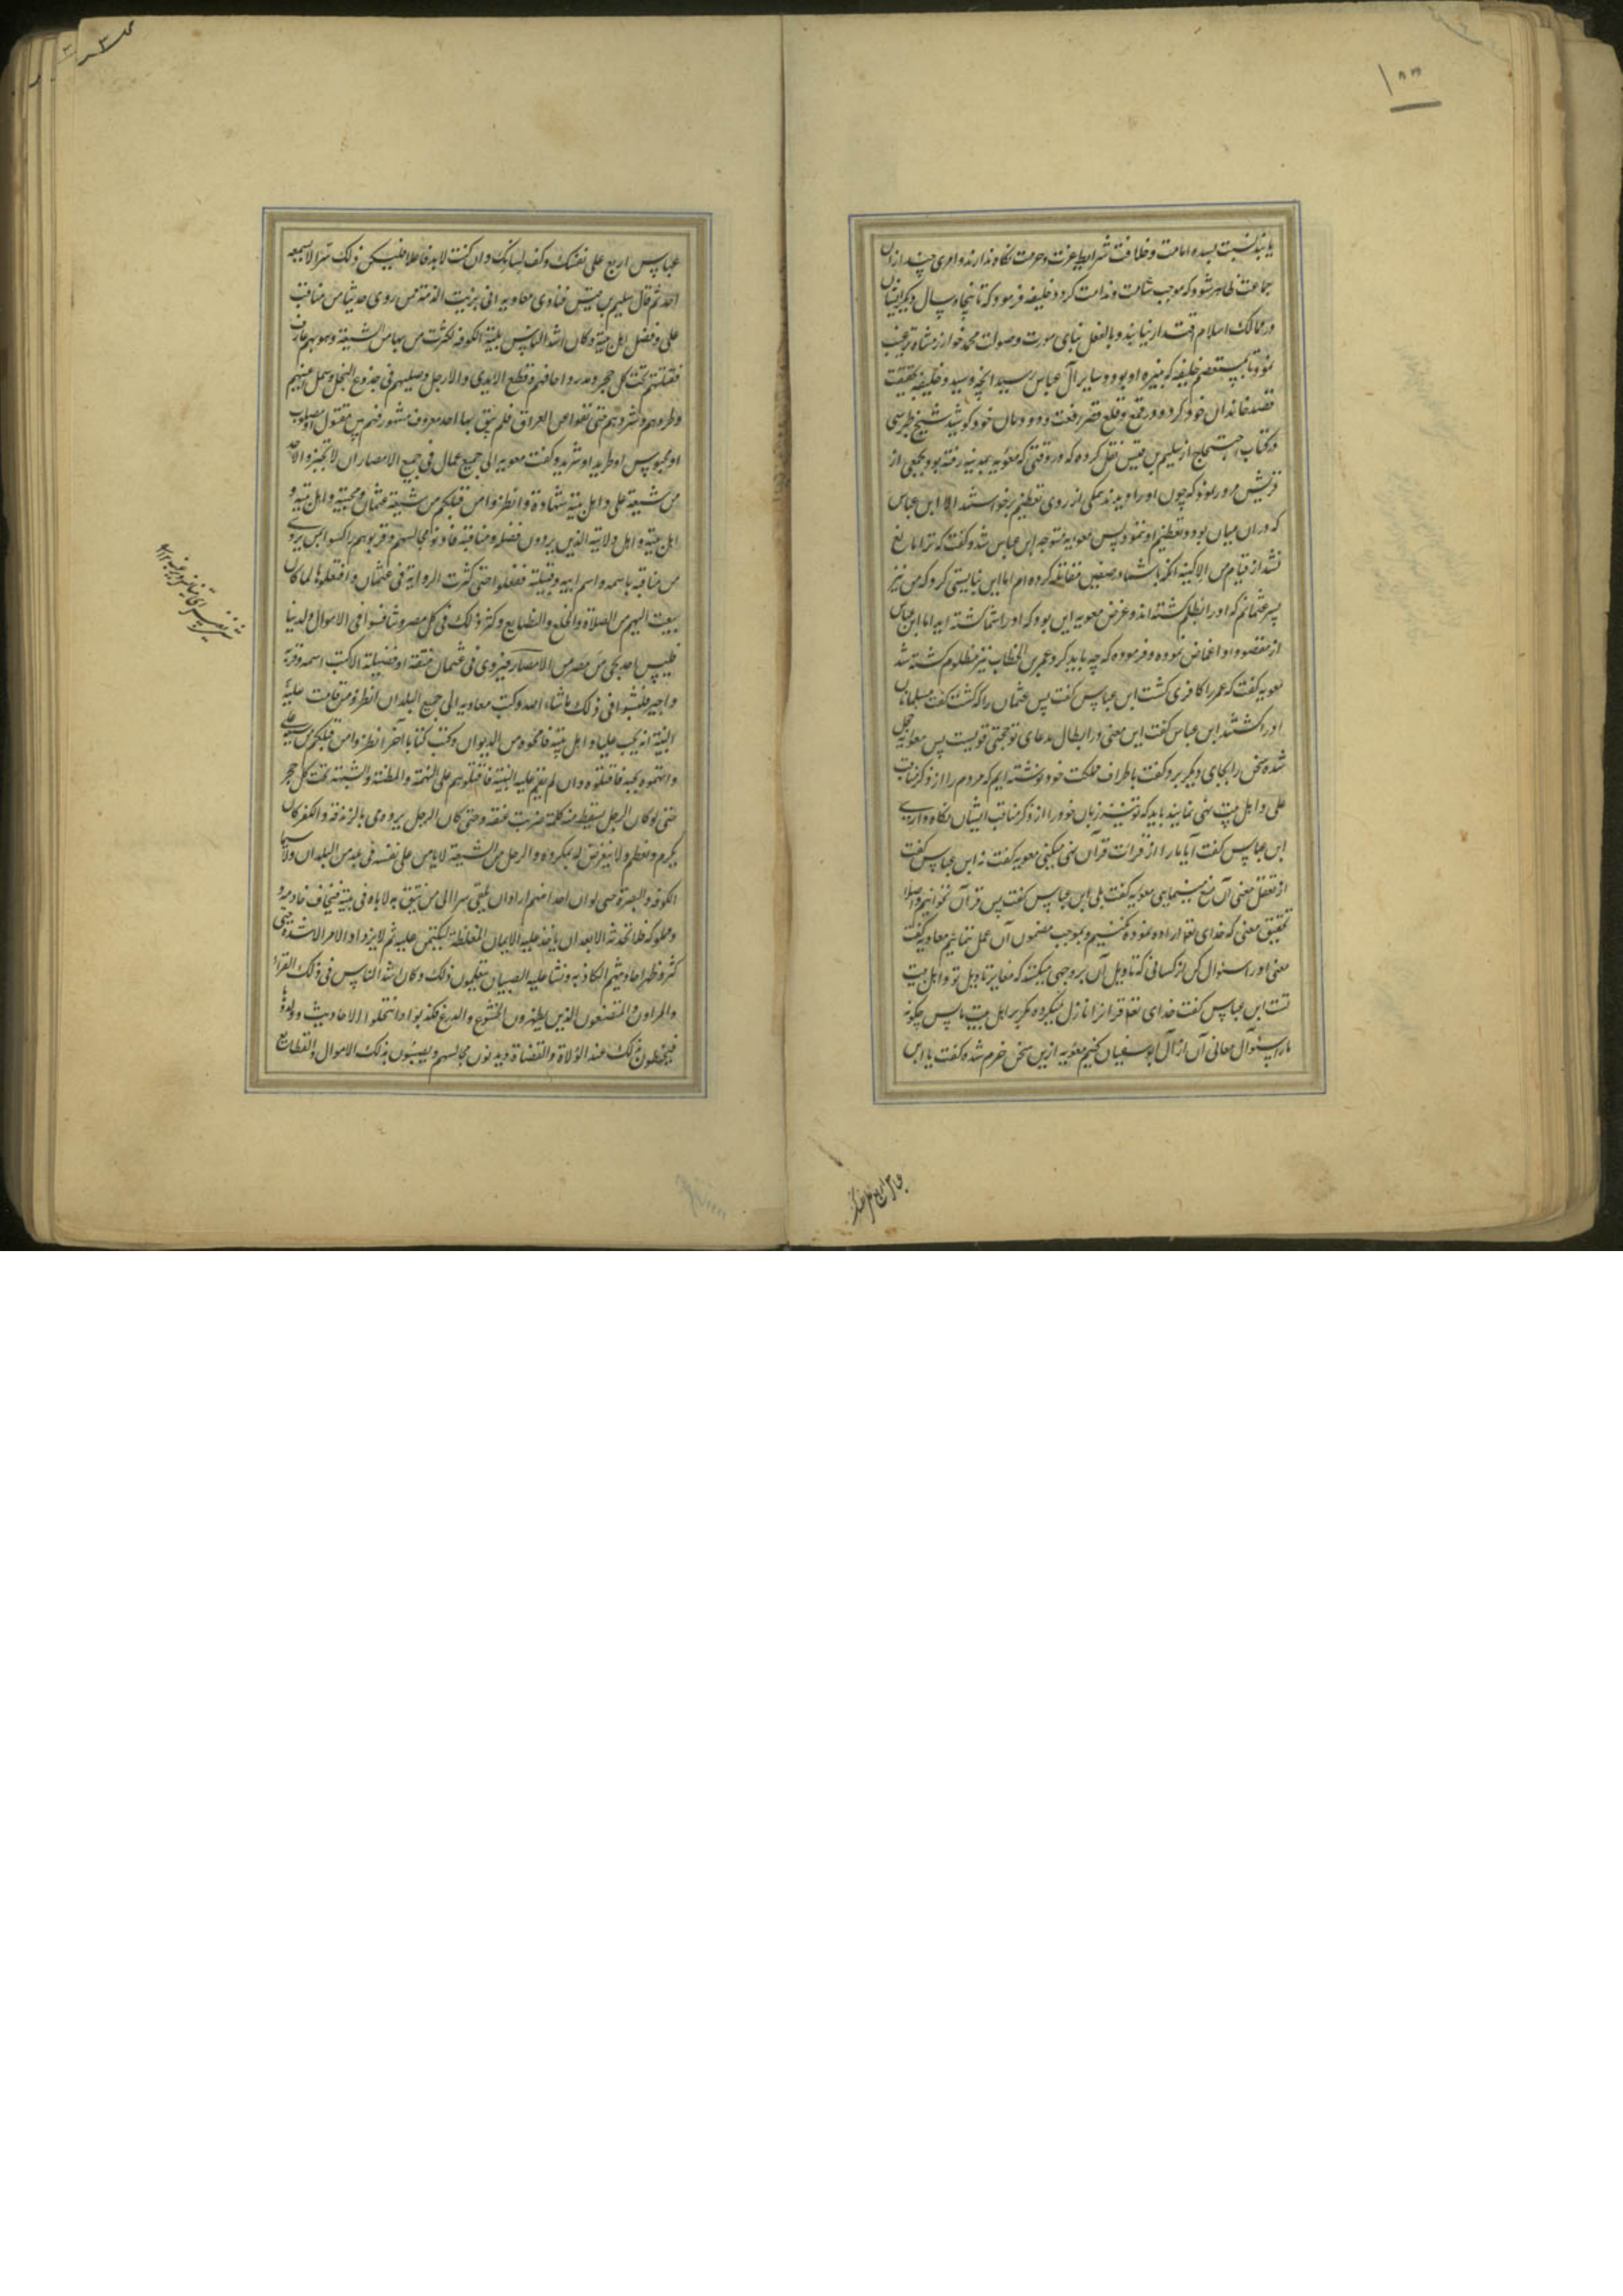 یابند نسبت بسده امامت و خلافت شرایط عزت و حرمت نگاه ندارند و امری چند ازان
جماعت ظاهر شود که موجب شماتت و ندامت کردد خلیفه فرمود که تا پنجاه سال دیکر ایشان
در ممالک اسلام اقتدار نیابند و بالفعل
نمود تا بمستعصم خلیفه که نبیره او بود و سایر آل عباس رسید آنچه رسید و خلیفه بحقیقت
قصد خاندان خود کرد و در قمع و قلع قصر رفعت دودمان خود کوشید شیخ طبرسی
در کتاب احتجاج از سلیم بن قیس نقل کرده که در وقتی که معویه بمدینه رفته بود بجمعی از
قریش مرور نمود که چون او را دیدند همکی از روی تعظیم برخواستند الا ابن عباس
که دران میان بود و تعظیم او ننمود پس معویه متوجه ابن عباس شد و کفت که ترا مانع
نشد از قیام من الا کینه آنکه با شما در صفین مقاتله کرده ام اما این نبایستی کرد که من نیز
پسر عثمانم که او را بظلم کشته اند و غرض معویه این بود که او را شما کشته اید اما ابن عباس
از مقصود او اغماض نموده و فرموده که چه باید کرد عمر بن الخطاب نیز مظلوم کشته شد
معویه کفت که عمر را کافری کشت ابن عباس کفت پس عثمان را که کشت کفت مسلمانان
او را کشتند ابن عباس کفت این معنی در ابطال مدعای تو حجتی قویست پس معویه خجل
شده سخن را بجای دیکر برد و کفت باطراف مملکت خود نوشته ایم که مردم را از ذکر مناقب
علی و اهل بیت نهی نمایند باید که تو نیز زبان خود را از ذکر مناقب ایشان نکاه داری
ابن عباس کفت آیا ما را از قرات قرآن نهی میکنی معویه کفت نه ابن عباس کفت
از تعقل معنی آن منع مینمایی معویه کفت بلی ابن عباس کفت پس قرآن بخوانیم و اصلا
تحقیق معنی که خدای تعا اراده نموده نکنیم و بموجب مضمون آن عمل ننمائیم معاویه کفت
معنی او را سئوال کن از کسانی که تاویل آن بر وجهی میکنند که مغایر تاویل تو و اهل بیت
تست ابن عباس کفت خدای تعا قرانرا نازل نکرده مکر بر اهل بیت ما پس چکونه
ما را سئوال معانی آن از آل ابو سفیان کنیم معویه ازین سخن خرم شده کفت یا ابن
عباس اربع
عباس اربع علی نفسک و کف لسانک و ان کنت لا بد فاعلا فلیکن ذلک سرا لا یسمعه
احد ثم قال سلیم بن قیس فنادی معاویه انی برئت الذمة ممن روی حدیثا من مناقب
علی و فضل اهل بیته و کان اشد الناس بلیة الکوفه لکثرت من بها من الشیعة و هو بهم عارف
فقتلهم تحت کل حجر و مدر و اخافهم و قطع الایدی و الارجل و صلبهم فی جذوع النخل و سمل اعینهم
و طردهم و شردهم حتی نفوا عن العراق فلم یبق بها احد معروف مشهور فهم بین مقتول او مصلوب
او محبوس او طرید او شرید و کفت معویه الی جمیع عمال فی جمیع الامصار ان لا تجیزوا لاحد
من شیعة علی و اهل بیته شهادة و انظروا من قبلکم من شیعة عثمان و محبیه و اهل بیته و
اهل بیته و اهل ولایته الذین یروون فضله و مناقبه فادنوا مجالسهم و قربوهم و اکتبوا بمن یروی
من مناقبه باسمه و اسم ابیه و قبیلته ففعلوا حتی کثرت الروایة فی عثمان و افتعلوها لما کان
یبعث الیهم من الصلاة و الخلع و القطایع و کثر ذلک فی کل مصر و تنافسوا فی الاموال و الدنیا
فلیس احد یجی من مصر من الامصار فیروی فی عثمان منقبة او فضیلة الا کتب اسمه و قربه
و اجیز فلبثوا فی ذلک ما شاء الله و کتب معاویه الی جمیع البلدان انظروا من قامت علیه
البینة انه یحب علیا و اهل بیته فامحوه من الدیوان و کتب کتابا آخر انظروا من قبلکم من شیعة علی
و اتهموه بحبه فاقتلوه و ان لم یقم علیه البینة فاقتلوهم علی التهمة و المظنة و الشبهة تحت کل حجر
حتی لو کان الرجل یسقط منه کلمة ضربت عنقه و حتی کان الرجل یرومی بالزندقة و الکفر کان
یکرم و یعظم و لا یتعرض له بمکروه و الرجل من الشیعة لا یامن علی نفسه فی بلد من البلدان و لا سیما
الکوفه و البصرة حتی لو ان احدا منهم اراد ان یلقی سرا الی من یثق به لاتاه فی بیته فیخاف خادمه و
مملوکه فلا یحدثه الا بعد ان یاخذ علیه الایمان المغلظة لیکتمن علیه ثم لا یزداد الامر الا شدة حتی
کثر و ظهر احادیثهم الکاذبه و نشا علیه الصبیان یتعلمون ذلک و کان اشد الناس فی ذلک القراء
و المراون و المتصنعون الذین یظهرون الخشوع و الورع فکذبوا و انتحلوا الاحادیث و ولدوها
فیحظون بذلک عند الولاة و القضاة و یدنون مجالسهم و یصیبون بذلک الاموال و القطایع